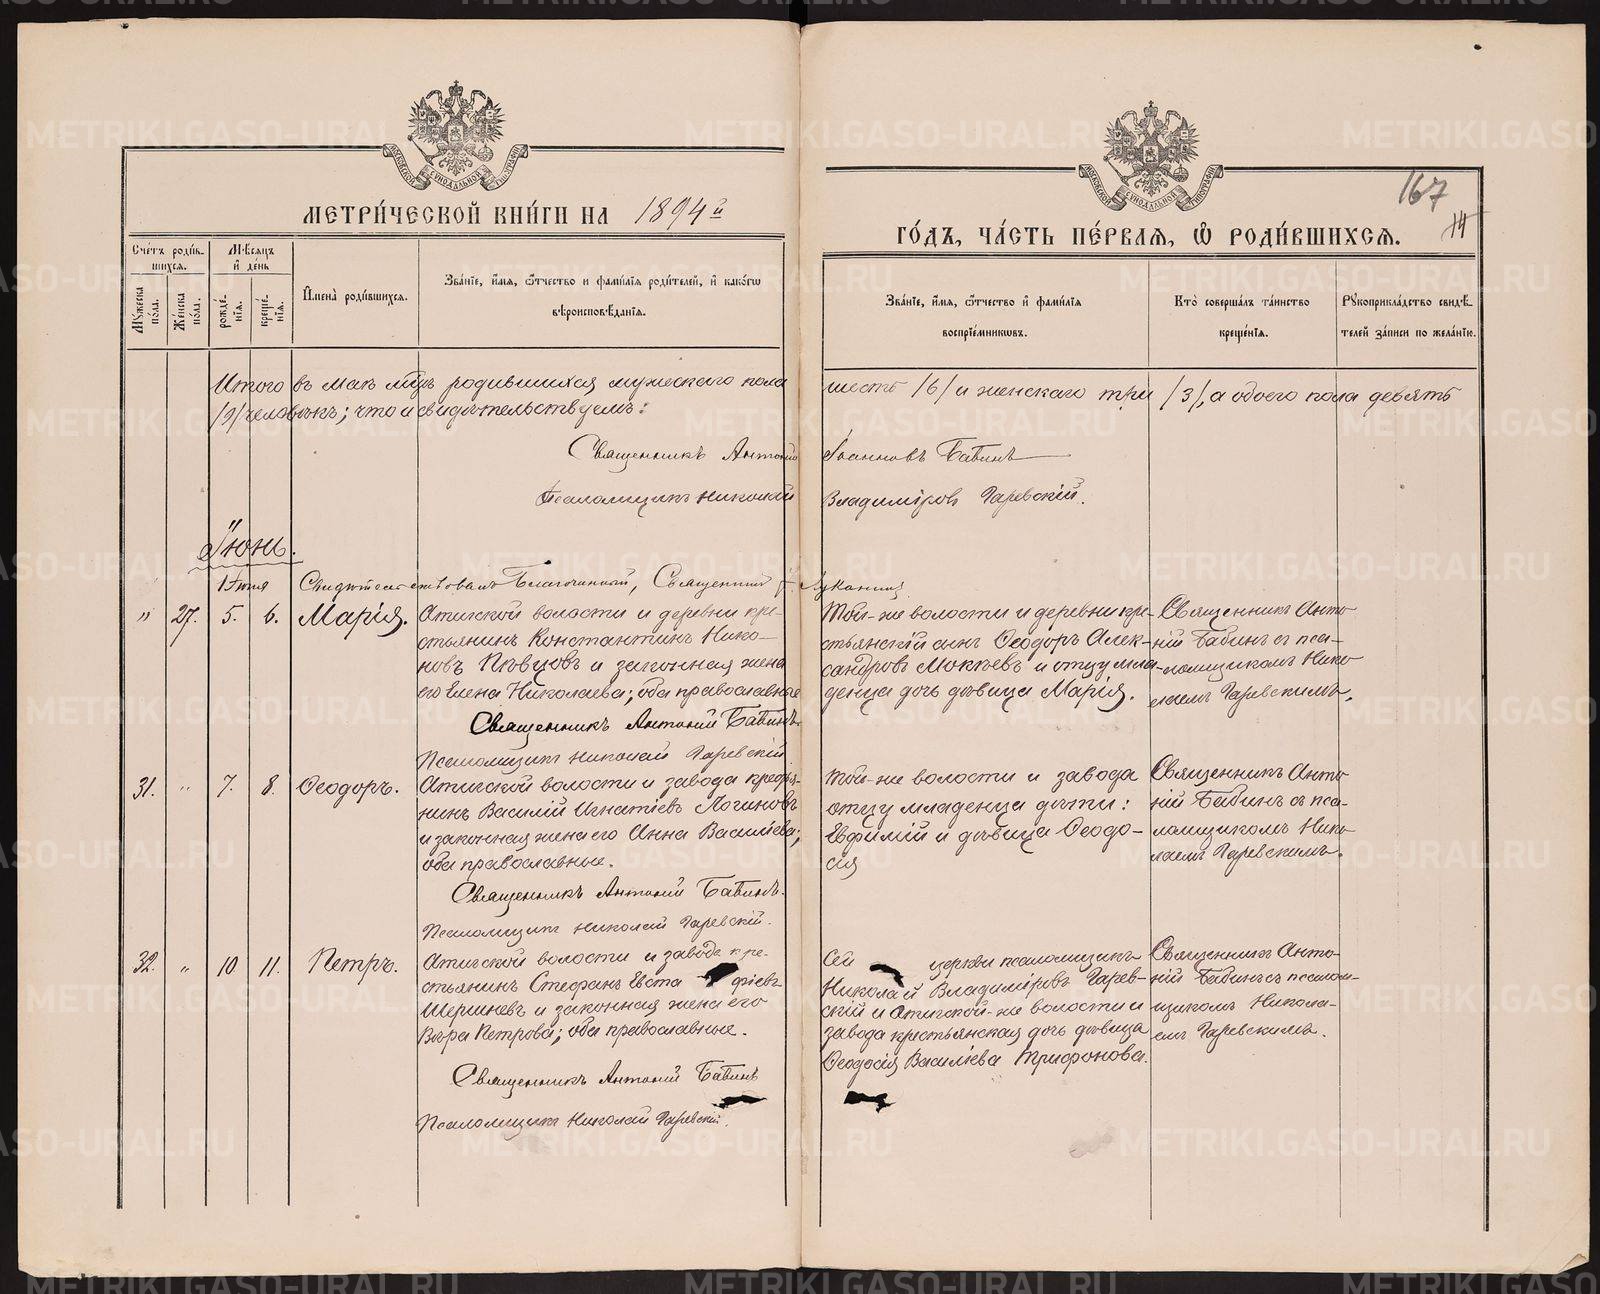 МЕТРИ́ЧЕСКОЙ КНИ́ГИ НА 1894й
ГО́ДЪ, ЧА́СТЬ ПЕ́РВАЯ, Ѽ РОДИ́ВШИХСЯ.
167
14
Сче́тъ роди́в-
шихся.
Му́жеска
по́ла.
Же́нска
по́ла.
Мѣсяцъ
и҆ де́нь
рожде́-
нїя.
креще́-
нїя.
И҆мена̀ роди́вшихся.
Зва́нїе, и҆́мя, ѻ҆́тчество и҆ фами́лїя роди́телей, и҆ како́гѡ
вѣроисповѣданїя.
Зва́нїе, и҆́мя, ѻ҆́тчество и҆ фами́лїя
воспрїе́мниковъ.
Кто̀ соверша́лъ та́инство
креще́нїя.
Рꙋкоприкла́дство свидѣ́-
телей за́писи по жела́нїю.
Итого въ маѣ мѣцѣ родившихся мужескаго пола шесть /6/ и женскаго три /3/, а обоего пола девять
/9/ человѣкъ; что и свидѣтельствуемъ:
Священникъ Антоній Іоанновъ Бабинъ
Псаломщикъ Николай Владиміровъ Гаревскій.
Іюнь.
1 Іюня Свидѣтельствовалъ Благочинный, Священникъ
" 27. 5. 6. Марія.
Атигской волости и деревни кре-
стьянинъ Константинъ Нико-
новъ Пѣвцовъ и законная жена
его Елена Николаева; оба православные
Священникъ Антоній Бабинъ.
Псаломщикъ Николай Гаревскій
Той-же волости и деревни кре-
стьянскій сынъ Ѳеодоръ Алек-
сандровъ Мокѣевъ и отцу мла-
денца дочь дѣвица Марія.
Священникъ Анто-
ній Бабинъ съ пса-
ломщикомъ Нико-
лаемъ Гаревскимъ.
31. " 7. 8. Ѳеодоръ.
Атигской волости и завода кресть-
нинъ Василій Игнатіевъ Логиновъ
и законная жена его Анна Васильева;
оба православные.
Священникъ Антоній Бабинъ.
Псаломщикъ Николай Гаревскій.
Той-же волости и завода
отцу младенца дѣти:
Евфимій и дѣвица Ѳеодо-
сія
Священникъ Анто-
ній Бабинъ съ пса-
ломщикомъ Нико-
лаемъ Гаревскимъ.
32. " 10 11. Петръ.
Атигской волости и завода кре-
стьянинъ Стефанъ Евста фіевъ
и законная жена его
Вѣра Петрова; оба православные.
Священникъ Антоній Бабинъ
Псаломщикъ Николай Гаревскій.
Сей церкви псаломщикъ
Николай Владиміровъ Гарев-
скій и Атигской-же волости и
завода крестьянская дочь дѣвица
Ѳеодосія Василіева Трифонова.
Священникъ Анто-
ній Бабинъ съ псалом-
щикомъ Никола-
емъ Гаревскимъ.